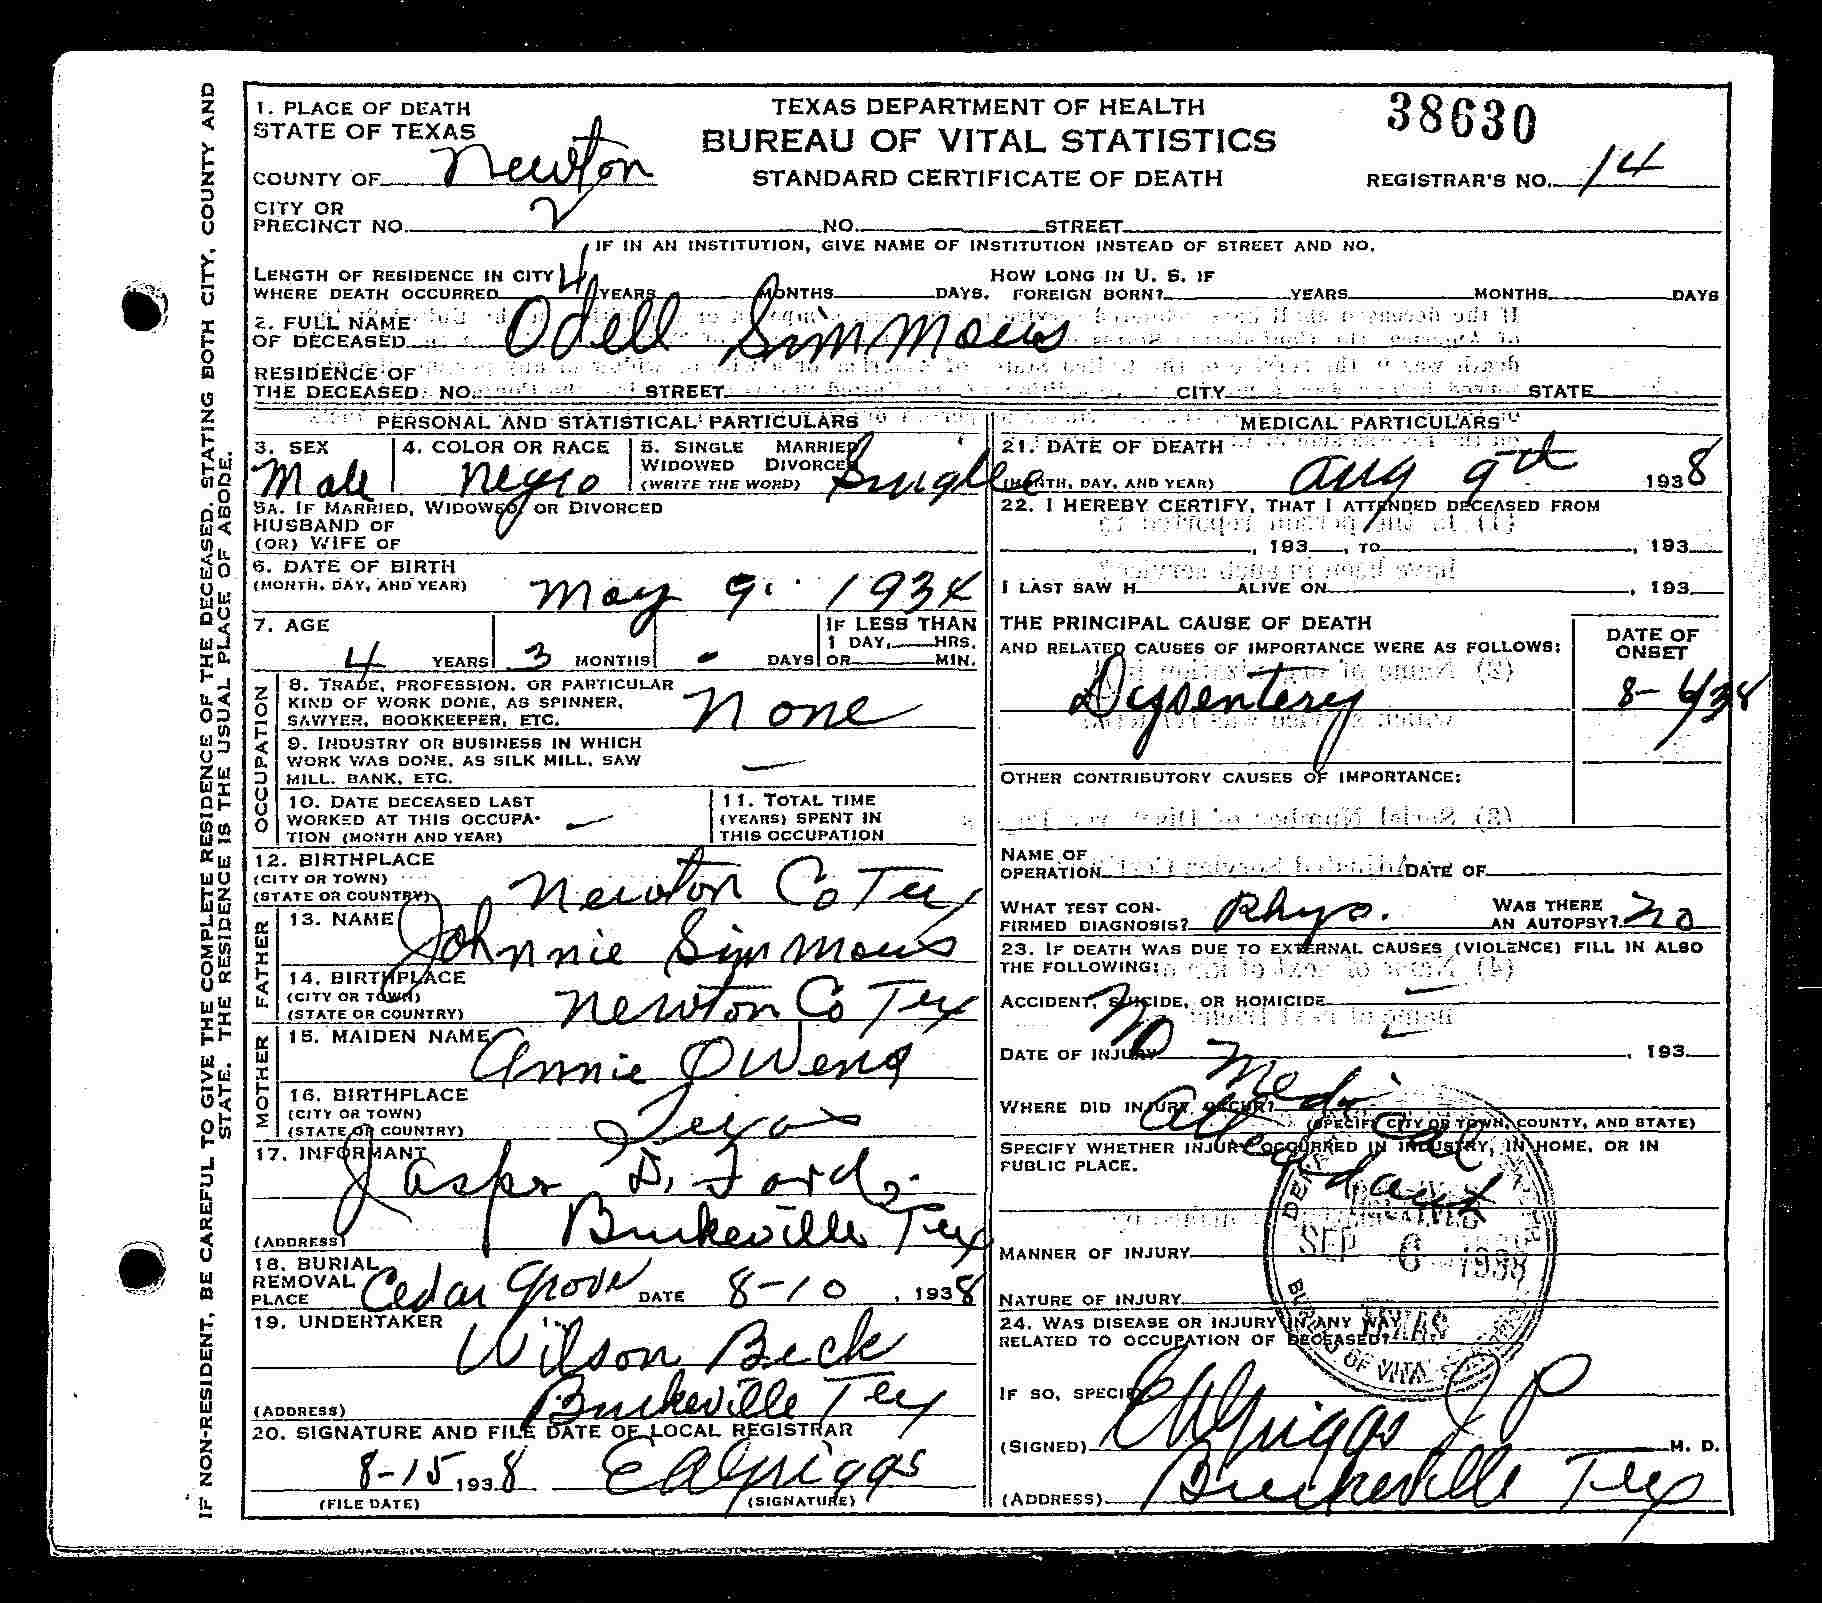 IF NON-RESIDENT, BE CAREFUL TO GIVE THE COMPLETE RESIDENCE OF THE DECEASED, STATING BOTH CITY, COUNTY AND
STATE. THE RESIDENCE IS THE USUAL PLACE OF ABODE.
1. PLACE OF DEATH
STATE OF TEXAS
COUNTY OF Newton
TEXAS DEPARTMENT OF HEALTH
BUREAU OF VITAL STATISTICS
STANDARD CERTIFICATE OF DEATH
38630
REGISTRAR'S NO. 14
CITY OR
PRECINCT NO. 2 NO. STREET
IF IN AN INSTITUTION, GIVE NAME OF INSTITUTION INSTEAD OF STREET AND NO.
LENGTH OF RESIDENCE IN CITY
WHERE DEATH OCCURRED 4 YEARS MONTHS DAYS.
HOW LONG IN U. S. IF
FOREIGN BORN? YEARS MONTHS DAYS
2. FULL NAME
OF DECEASED Odell Simmons
RESIDENCE OF
THE DECEASED: NO. STREET CITY STATE
PERSONAL AND STATISTICAL PARTICULARS
3. SEX
Male
4. COLOR OR RACE
Negro
5. SINGLE MARRIED
WIDOWED DIVORCED
(WRITE THE WORD) Single
5A. IF MARRIED, WIDOWED, OR DIVORCED
HUSBAND OF
(OR) WIFE OF
6. DATE OF BIRTH
(MONTH, DAY, AND YEAR) May 9. 1934
7. AGE
4 YEARS 3 MONTHS - DAYS
IF LESS THAN
1 DAY, HRS.
OR MIN.
OCCUPATION
8. TRADE, PROFESSION, OR PARTICULAR
KIND OF WORK DONE, AS SPINNER,
SAWYER, BOOKKEEPER, ETC. None
9. INDUSTRY OR BUSINESS IN WHICH
WORK WAS DONE, AS SILK MILL, SAW
MILL, BANK, ETC. —
10. DATE DECEASED LAST
WORKED AT THIS OCCUPA-
TION (MONTH AND YEAR) —
11. TOTAL TIME
(YEARS) SPENT IN
THIS OCCUPATION
12. BIRTHPLACE
(CITY OR TOWN)
(STATE OR COUNTRY) Newton Co Tex
FATHER
13. NAME Johnnie Simmons
14. BIRTHPLACE
(CITY OR TOWN)
(STATE OR COUNTRY) Newton Co Tex
MOTHER
15. MAIDEN NAME Annie Owens
16. BIRTHPLACE
(CITY OR TOWN)
(STATE OR COUNTRY) Texas
17. INFORMANT
Jasper D. Ford
(ADDRESS) Burkeville Tex
18. BURIAL
REMOVAL
PLACE Cedar Grove DATE 8-10, 1938
19. UNDERTAKER
Wilson Beck
(ADDRESS) Burkeville Tex
20. SIGNATURE AND FILE DATE OF LOCAL REGISTRAR
8-15 1938 EA Griggs
(FILE DATE) (SIGNATURE)
MEDICAL PARTICULARS
21. DATE OF DEATH
(MONTH, DAY, AND YEAR) Aug 9th 1938
22. I HEREBY CERTIFY, THAT I ATTENDED DECEASED FROM
, 193 , TO , 193
I LAST SAW H ALIVE ON , 193
THE PRINCIPAL CAUSE OF DEATH
AND RELATED CAUSES OF IMPORTANCE WERE AS FOLLOWS:
DATE OF
ONSET
Dysentery 8-6/38
OTHER CONTRIBUTORY CAUSES OF IMPORTANCE:
NAME OF
OPERATION DATE OF
WHAT TEST CON-
FIRMED DIAGNOSIS? Phys.
WAS THERE
AN AUTOPSY? No
23. IF DEATH WAS DUE TO EXTERNAL CAUSES (VIOLENCE) FILL IN ALSO
THE FOLLOWING:
ACCIDENT, SUICIDE, OR HOMICIDE —
DATE OF INJURY — , 193
No Medical Attendant
WHERE DID INJURY OCCUR?
(SPECIFY CITY OR TOWN, COUNTY, AND STATE)
SPECIFY WHETHER INJURY OCCURRED IN INDUSTRY, IN HOME, OR IN
PUBLIC PLACE.
MANNER OF INJURY
NATURE OF INJURY
RECEIVED
SEP 6 1938
TEXAS
BUREAU OF VITAL
24. WAS DISEASE OR INJURY IN ANY WAY
RELATED TO OCCUPATION OF DECEASED?
IF SO, SPECIFY
(SIGNED) EA Griggs J P M. D.
(ADDRESS) Burkeville Tex